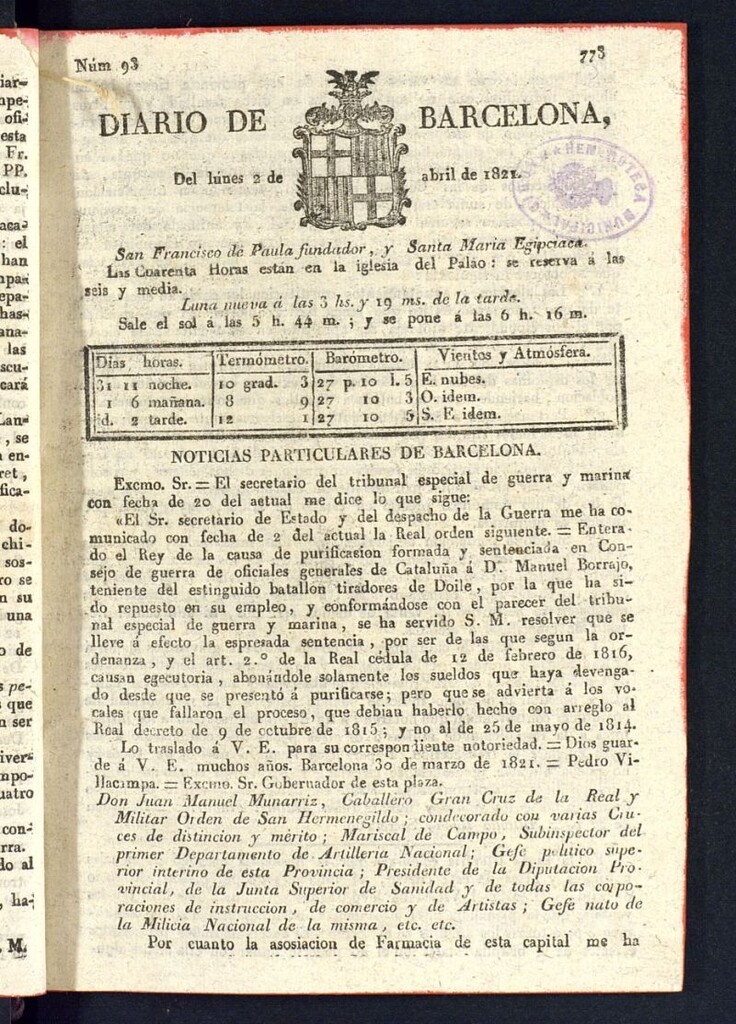 Núm 93
773
DIARIO DE BARCELONA,
Del lúnes 2 de abril de 1821.
HEMEROTECA MUNICIPAL
San Francisco de Paula fundador, y Santa Maria Egipciaca.
Las Cuarenta Horas están en la iglesia del Palao: se reserva á las
seis y media.
Luna nueva á las 3 hs. y 19 ms. de la tarde.
Sale el sol á las 5 h. 44 m. ; y se pone á las 6 h. 16 m.
Dias horas. Termómetro. Barómetro. Vientos y Atmósfera.
31 11 noche. 10 grad. 3 27 p. 10 l. 5 E. nubes.
1 6 mañana. 8 9 27 10 3 O. idem.
id. 2 tarde. 12 1 27 10 5 S. E. idem.
NOTICIAS PARTICULARES DE BARCELONA.
Excmo. Sr. = El secretario del tribunal especial de guerra y marina
con fecha de 20 del actual me dice lo que sigue:
«El Sr. secretario de Estado y del despacho de la Guerra me ha co-
municado con fecha de 2 del actual la Real orden siguiente. = Entera-
do el Rey de la causa de purificasion formada y sentenciada en Con-
sejo de guerra de oficiales generales de Cataluña á D. Manuel Borrajo,
teniente del estinguido batallon tiradores de Doile, por la que ha si-
do repuesto en su empleo, y conformándose con el parecer del tribu-
nal especial de guerra y marina, se ha servido S. M. resolver que se
lleve á efecto la espresada sentencia, por ser de las que segun la or-
denanza, y el art. 2.º de la Real cédula de 12 de febrero de 1816,
causan egecutoria, abonándole solamente los sueldos que haya devenga-
do desde que se presentó á purificarse; pero que se advierta á los vo-
cales que fallaron el proceso, que debian haberlo hecho con arreglo al
Real decreto de 9 de octubre de 1815; y no al de 25 de mayo de 1814.
Lo traslado á V. E. para su correspondiente notoriedad. = Dios guar-
de á V. E. muchos años. Barcelona 30 de marzo de 1821. = Pedro Vi-
llacampa. = Excmo. Sr. Gobernador de esta plaza.
Don Juan Manuel Munarriz, Caballero Gran Cruz de la Real y
Militar Orden de San Hermenegildo; condecorado con varias Cru-
ces de distincion y mérito; Mariscal de Campo, Subinspector del
primer Departamento de Artilleria Nacional; Gefe político supe-
rior interino de esta Provincia; Presidente de la Diputacion Pro-
vincial, de la Junta Superior de Sanidad y de todas las corpo-
raciones de instruccion, de comercio y de Artistas; Gefe nato de
la Milicia Nacional de la misma, etc. etc.
Por cuanto la asosiacion de Farmacia de esta capital me ha